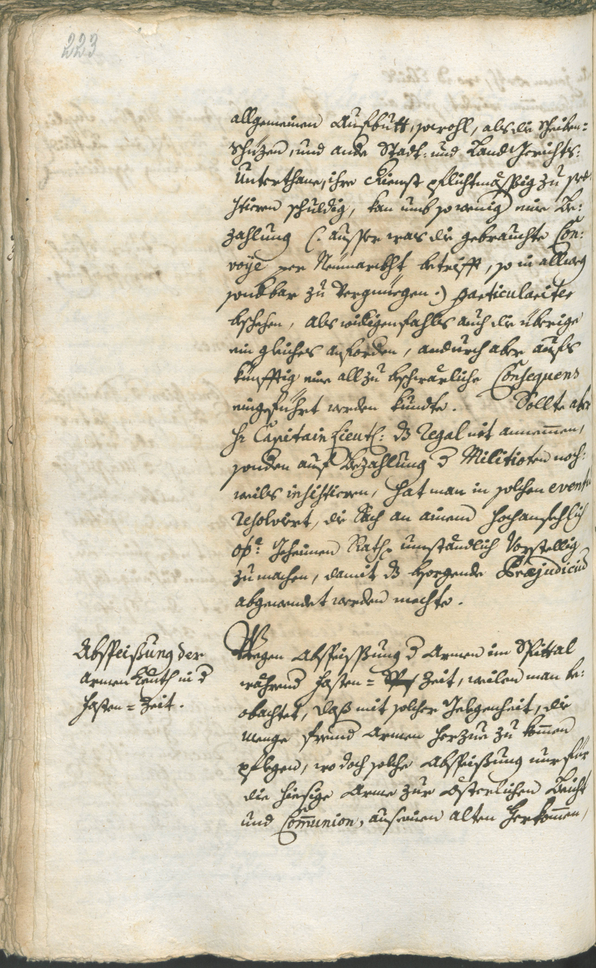 223
allgemeinen Aufbütt, sowohl, als die Scheiben=
schüzen, und ande Stadt- und LandGerichts-
Unterthane, ihre Dienst pflichtmässig zu præ
stieren schuldig, kan umb so wenig eine Be-
zahlung (: ausser was die gebrauchte Con-
voÿe per Neumarckht betrifft, so in allweg
zu vergnüegen :) particulariter
beschehen, als widrigenfahls auch die übrige
ein gleiches anforderen, andurch aber aufs
künfftig eine allzu beschwärliche Consequens
eingeführt werden kundte. Sollte aber
Hr Capitain Lieut: ds Regal nit annemmen,
sonderen auf Bezahlung d Militioten noch-
mals insistieren, hat man in solchen event
resolviert, die Sach an ainem Hochansehlich
oö: Geheimen Rath umständlich vorstellig
zu machen, damit ds besorgende Præjudicium
abgewendet werden mechte.
Abspeisung der
armen Leuth in d
Fasten=Zeit.
Wegen Abspeissung d Armen im Spittal
während Fasten= Zeit, weilen man be-
obachtet, daß mit solcher Gelegenheit, die
Menge fremd Armen herzue zu kommen
pflegen, wo doch solche Abspeisung nur für
die hiesige Arme zur Österlichen Beicht
und Communion, aus einen alten Herkomen,